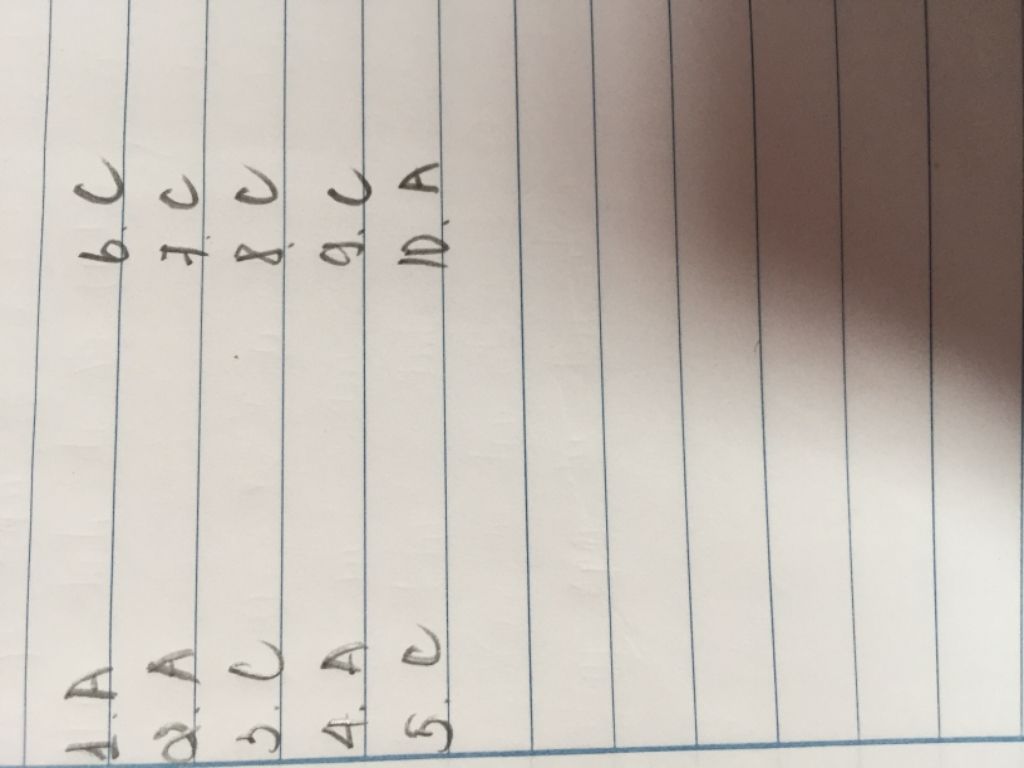 1. A 6. C
2. A 7. C
3. C 8. C
4. A 9. C
5. C 10. A